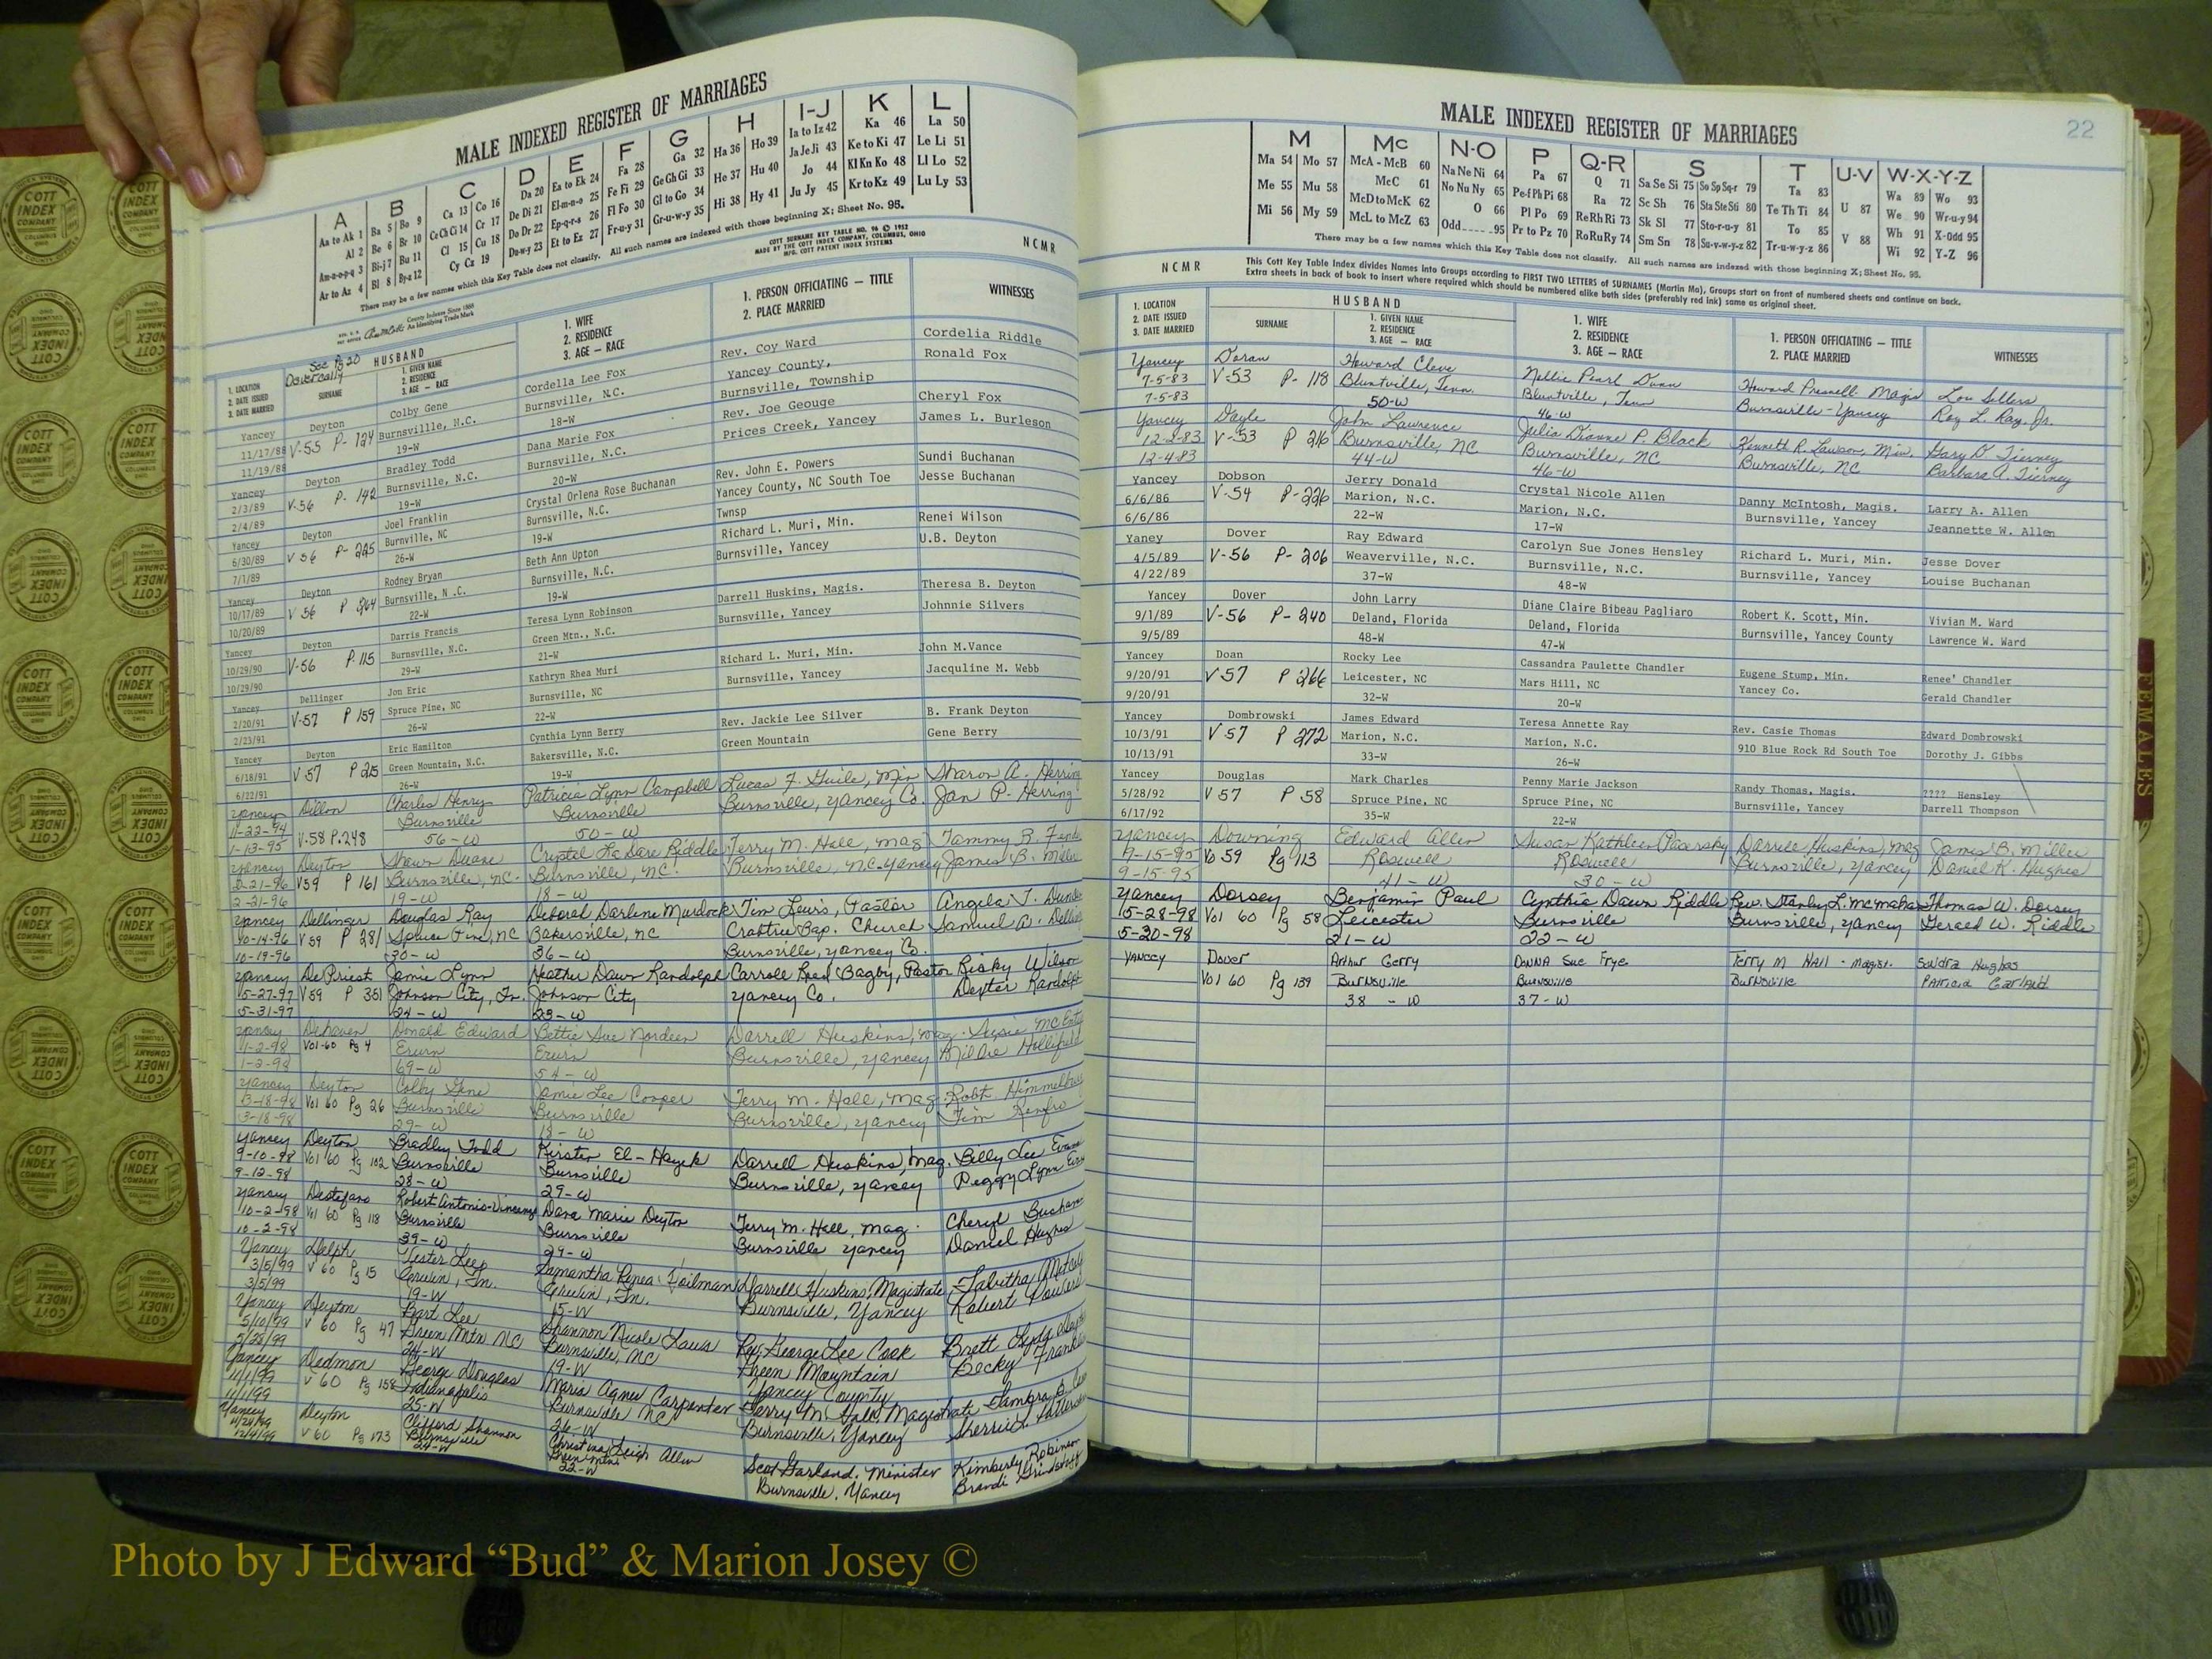 MALE INDEXED REGISTER OF MARRIAGES
A B C D E F G H I-J K L
Aa to Ak 1 Ba 5 Bo 9 Ca 13 Co 16 Da 20 Ea to Ek 24 Fa 28 Ga 32 Ha 36 Ho 39 Ia to Iz 42 Ka 46 La 50
Al 2 Be 6 Br 10 Ce Ch Ci 14 Cr 17 De Di 21 El-m-n-o 25 Fe Fi 29 Ge Gh Gi 33 He 37 Hu 40 Ja Je Ji 43 Ke to Ki 47 Le Li 51
Am-n-o-p-q 3 Bi-j 7 Bu 11 Cl 15 Cu 18 Do Dr 22 Ep-q-r-s 26 Fl Fo 30 Gl to Go 34 Hi 38 Hy 41 Jo 44 Kl Kn Ko 48 Ll Lo 52
Ar to Az 4 Bl 8 By-z 12 Cy Cz 19 Du-w-y 23 Et to Ez 27 Fr-u-y 31 Gr-u-w-y 35 Ju Jy 45 Kr to Kz 49 Lu Ly 53
There may be a few names which this Key Table does not classify. All such names are indexed with those beginning X; Sheet No. 95.
COTT SURNAME KEY TABLE NO. 96 © 1952
MADE BY THE COTT INDEX COMPANY, COLUMBUS, OHIO
MFG. COTT PATENT INDEX SYSTEMS
NCMR
County Indexes Since 1888
An Identifying Trade Mark
See Pg 20
HUSBAND
1. LOCATION
2. DATE ISSUED
3. DATE MARRIED
SURNAME
1. GIVEN NAME
2. RESIDENCE
3. AGE — RACE
1. WIFE
2. RESIDENCE
3. AGE — RACE
1. PERSON OFFICIATING — TITLE
2. PLACE MARRIED
WITNESSES
Yancey Deyton Colby Gene Cordella Lee Fox Rev. Coy Ward Cordelia Riddle
11/17/88 V-55 P-124 Burnsvillle, N.C. Burnsville, N.C. Yancey County, Ronald Fox
11/19/88 19-W 18-W Burnsville, Township
Yancey Deyton Bradley Todd Dana Marie Fox Rev. Joe Geouge Cheryl Fox
2/3/89 V-56 P-142 Burnsville, N.C. Burnsville, N.C. Prices Creek, Yancey James L. Burleson
2/4/89 19-W 20-W
Yancey Deyton Joel Franklin Crystal Orlena Rose Buchanan Rev. John E. Powers Sundi Buchanan
6/30/89 V 56 P-225 Burnsville, NC Burnsville, N.C. Yancey County, NC South Toe Jesse Buchanan
7/1/89 26-W 19-W Twnsp
Yancey Deyton Rodney Bryan Beth Ann Upton Richard L. Muri, Min. Renei Wilson
10/17/89 V 56 P 264 Burnsville, N .C. Burnsville, N.C. Burnsville, Yancey U.B. Deyton
10/20/89 22-W 19-W
Yancey Deyton Darris Francis Teresa Lynn Robinson Darrell Huskins, Magis. Theresa B. Deyton
10/29/90 V-56 P.115 Burnsville, N.C. Green Mtn., N.C. Burnsville, Yancey Johnnie Silvers
10/29/90 29-W 21-W
Yancey Dellinger Jon Eric Kathryn Rhea Muri Richard L. Muri, Min. John M.Vance
2/20/91 V-57 P 159 Spruce Pine, NC Burnsville, NC Burnsville, Yancey Jacquline M. Webb
2/23/91 26-W 22-W
Yancey Deyton Eric Hamilton Cynthia Lynn Berry Rev. Jackie Lee Silver B. Frank Deyton
6/18/91 V 57 P 215 Green Mountain, N.C. Bakersville, N.C. Green Mountain Gene Berry
6/22/91 26-W 19-W
Yancey Dillon Charles Henry Patricia Lynn Campbell Lucas F. Guile, Min Sharon A. Herring
11-22-94 V-58 P.248 Burnsville Burnsville Burnsville, Yancey Co. Jan P. Herring
1-13-95 56-W 50-W
Yancey Deyton Shawn Duane Crystal LaDare Riddle Terry M. Hall, Mag Tammy R.
2-21-96 V59 P 161 Burnsville, NC. Burnsville, NC. Burnsville, N.C. Yancey James B. Miller
2-21-96 19-W 18-W
Yancey Dellinger Douglas Ray Deborah Darlene Murdock Tim Lewis, Pastor Angela T.
10-14-96 V59 P 281 Spruce Pine, NC Bakersville, NC Crabtree Bap. Church Samuel
10-19-96 30-W 36-W Burnsville, Yancey Co.
Yancey DePriest Jamie Lynn Heather Dawn Randolph Carroll Reed Bagby, Pastor Ricky Wilson
5-27-97 V59 P 351 Johnson City, Tn. Johnson City Yancey Co. Dexter Randolph
5-31-97 24-W 23-W
Yancey DeHaven Donald Edward Bettie Sue Nordeen Darrell Huskins, Mag. Susie
1-2-98 Vol-60 Pg 4 Erwin Erwin Burnsville, Yancey Hollifield
1-2-98 69-W 54-W
Yancey Deyton Colby Gene Jamie Lee Cooper Terry M. Hall, Mag. Robt.
3-18-98 Vol 60 Pg 26 Burnsville Burnsville Burnsville, Yancey Tim Renfro
3-18-98 29-W 18-W
Yancey Deyton Bradley Todd Kirsten El-Hayek Darrell Huskins, Mag. Billy Lee
9-10-98 Vol 60 Pg 102 Burnsville Burnsville Burnsville, Yancey Peggy Lynn
9-12-98 28-W 29-W
Yancey Destefano Robert Antonio-Vincenzo Dana Marie Deyton Terry M. Hall, Mag. Cheryl
10-2-98 Vol 60 Pg 118 Burnsville Burnsville Burnsville Yancey Daniel Hughes
10-2-98 39-W 29-W
Yancey Delph Lester Lee Samantha Renea Darrell Huskins, Magistrate Tabitha
3/5/99 V 60 Pg 15 Erwin, Tn. Erwin, Tn. Burnsville, Yancey Robert Powers
3/5/99 19-W 15-W
Yancey Deyton Bart Lee Shannon Nicole Laws Rev. George Lee Cook Brett
5/10/99 V 60 Pg 47 Green Mtn NC Burnsville, NC Green Mountain Becky
5/22/99 24-W 19-W Yancey County
Yancey Dedmon George Douglas Maria Agnes Carpenter Terry M. Hall, Magistrate
11/1/99 V 60 Pg 158 Indianapolis Burnsville NC Burnsville, Yancey
11/1/99 25-W 26-W
Yancey Deyton Clifford Shannon Christina Leigh Allen Scot Garland, Minister Kimberly Robinson
11/24/99 V 60 Pg 173 Burnsville Green Mtn Burnsville, Yancey Brandi Grindstaff
12/4/99 24-W 22-W
22
MALE INDEXED REGISTER OF MARRIAGES
M Mc N-O P Q-R S T U-V W-X-Y-Z
Ma 54 Mo 57 McA - McB 60 Na Ne Ni 64 Pa 67 Q 71 Sa Se Si 75 So Sp Sq-r 79 Ta 83 U 87 Wa 89 Wo 93
Me 55 Mu 58 McC 61 No Nu Ny 65 Pe-f Ph Pi 68 Ra 72 Sc Sh 76 Sta Ste Sti 80 Te Th Ti 84 V 88 We 90 Wr-u-y 94
Mi 56 My 59 McD to McK 62 O 66 Pl Po 69 Re Rh Ri 73 Sk Sl 77 Sto-r-u-y 81 To 85 Wh 91 X-Odd 95
McL to McZ 63 Odd 95 Pr to Pz 70 Ro Ru Ry 74 Sm Sn 78 Su-v-w-y-z 82 Tr-u-w-y-z 86 Wi 92 Y-Z 96
There may be a few names which this Key Table does not classify. All such names are indexed with those beginning X; Sheet No. 95.
NCMR
This Cott Key Table Index divides Names into Groups according to FIRST TWO LETTERS of SURNAMES (Martin Ma), Groups start on front of numbered sheets and continue on back.
Extra sheets in back of book to insert where required which should be numbered alike both sides (preferably red ink) same as original sheet.
HUSBAND
1. LOCATION
2. DATE ISSUED
3. DATE MARRIED
SURNAME
1. GIVEN NAME
2. RESIDENCE
3. AGE — RACE
1. WIFE
2. RESIDENCE
3. AGE — RACE
1. PERSON OFFICIATING — TITLE
2. PLACE MARRIED
WITNESSES
Yancey Doran Howard Cleve Nellie Pearl Dunn Howard Presnell Magis Lou Sellers
7-5-83 V-53 P-118 Bluntville, Tenn. Bluntville, Tenn Burnsville-Yancey Roy L. Ray, Jr.
7-5-83 50-W 46-W
Yancey Dayle John Lawrence Julia Dianne P. Black Kenneth R. Lawson, Min. Gary D Tierney
12-2-83 V-53 P 216 Burnsville, NC Burnsville, NC Burnsville, NC Barbara A. Tierney
12-4-83 44-W 46-W
Yancey Dobson Jerry Donald Crystal Nicole Allen Danny McIntosh, Magis. Larry A. Allen
6/6/86 V-54 P-226 Marion, N.C. Marion, N.C. Burnsville, Yancey Jeannette W. Allen
6/6/86 22-W 17-W
Yaney Dover Ray Edward Carolyn Sue Jones Hensley Richard L. Muri, Min. Jesse Dover
4/5/89 V-56 P-206 Weaverville, N.C. Burnsville, N.C. Burnsville, Yancey Louise Buchanan
4/22/89 37-W 48-W
Yancey Dover John Larry Diane Claire Bibeau Pagliaro Robert K. Scott, Min. Vivian M. Ward
9/1/89 V-56 P-240 Deland, Florida Deland, Florida Burnsville, Yancey County Lawrence W. Ward
9/5/89 48-W 47-W
Yancey Doan Rocky Lee Cassandra Paulette Chandler Eugene Stump, Min. Renee' Chandler
9/20/91 V 57 P 266 Leicester, NC Mars Hill, NC Yancey Co. Gerald Chandler
9/20/91 32-W 20-W
Yancey Dombrowski James Edward Teresa Annette Ray Rev. Casie Thomas Edward Dombrowski
10/3/91 V 57 P 272 Marion, N.C. Marion, N.C. 910 Blue Rock Rd South Toe Dorothy J. Gibbs
10/13/91 33-W 26-W
Yancey Douglas Mark Charles Penny Marie Jackson Randy Thomas, Magis. ???? Hensley
5/28/92 V 57 P 58 Spruce Pine, NC Spruce Pine, NC Burnsville, Yancey Darrell Thompson
6/17/92 35-W 22-W
Yancey Downing Edward Allen Susan Kathleen Darrell Huskins, Mag James B. Miller
9-15-95 Vo 59 Pg 113 Roswell Roswell Burnsville, Yancey Daniel K. Hughes
9-15-95 41-W 30-W
Yancey Dorsey Benjamin Paul Cynthia Dawn Riddle Rev. Stanley L. McMahan Thomas W. Dorsey
5-28-98 Vol 60 Pg 58 Leicester Burnsville Burnsville, Yancey Gerald W. Riddle
5-30-98 21-W 22-W
Yancey Dover Arthur Gerry Donna Sue Frye Terry M Hall - Magist. Sandra Hughes
Vol 60 Pg 139 Burnsville Burnsville Burnsville Patricia Garland
38 - W 37-W
FEMALES
COTT INDEX COMPANY
Photo by J Edward “Bud” & Marion Josey ©